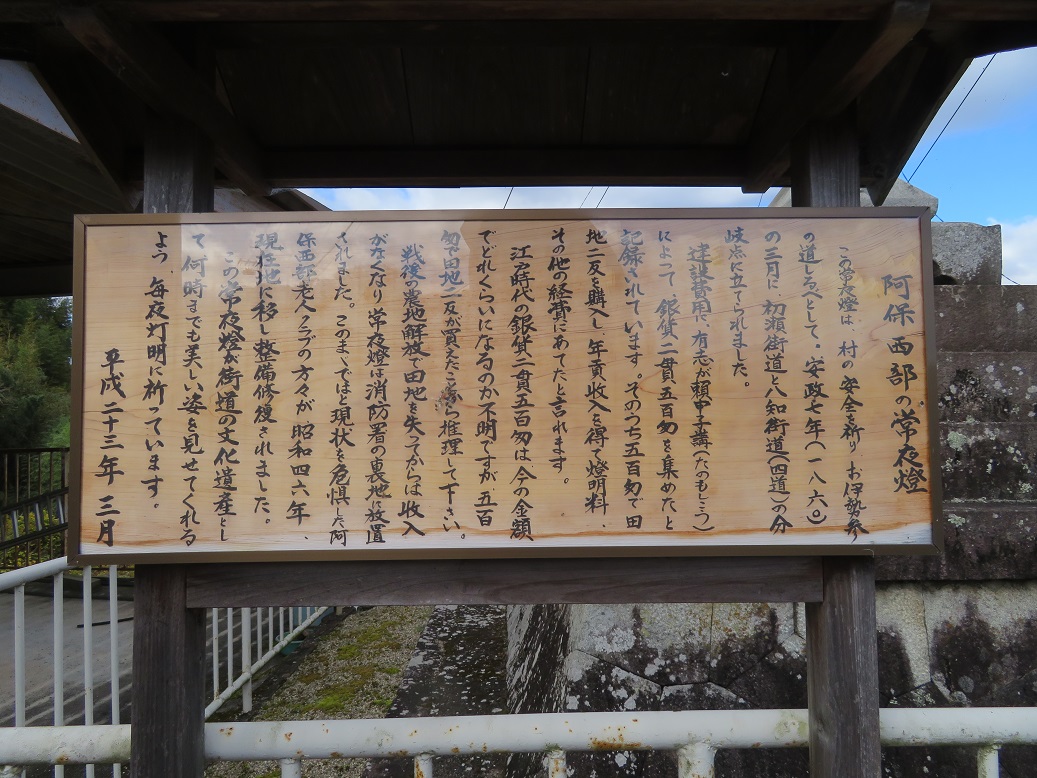 阿保西部の常夜燈
この常夜燈は、村の安全を祈り、お伊勢参り
の道しるべとして、安政七年(一八六〇)
の三月に初瀬街道と八知街道(四道)の分
岐点に立てられました。
建設費用は、有志が頼母子講(たのもしこう)
によって、銀貨二貫五百匁を集めたと
記録されています。そのうち五百匁で田
地二反を購入し、年貢収入を得て燈明料、
その他の経費にあてたと言われます。
江戸時代の銀貨二貫五百匁は、今の金額
でどれくらいになるのか不明ですが、五百
匁で田地二反が買えたことから推理して下さい。
戦後の農地解放で田地を失ってからは収入
がなくなり常夜燈は消防署の裏地に放置
されました。このままではと現状を危惧した阿
保西部老人クラブの方々が、昭和四六年、
現在地に移し整備修復されました。
この常夜燈が街道の文化遺産とし
て何時までも美しい姿を見せてくれる
よう、毎夜灯明に祈っています。
平成二十三年三月